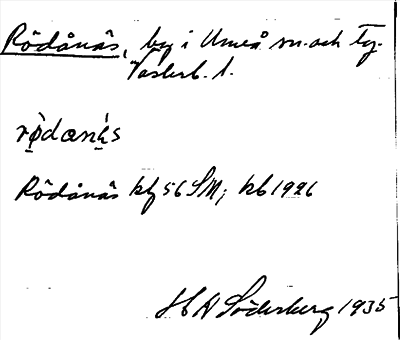 Rödånäs, by i Umeå sn. och tg.
Västerb. l.
rödanä́s
Rödånäs kbf 56 SM; kb 1926
H Söderberg 1935